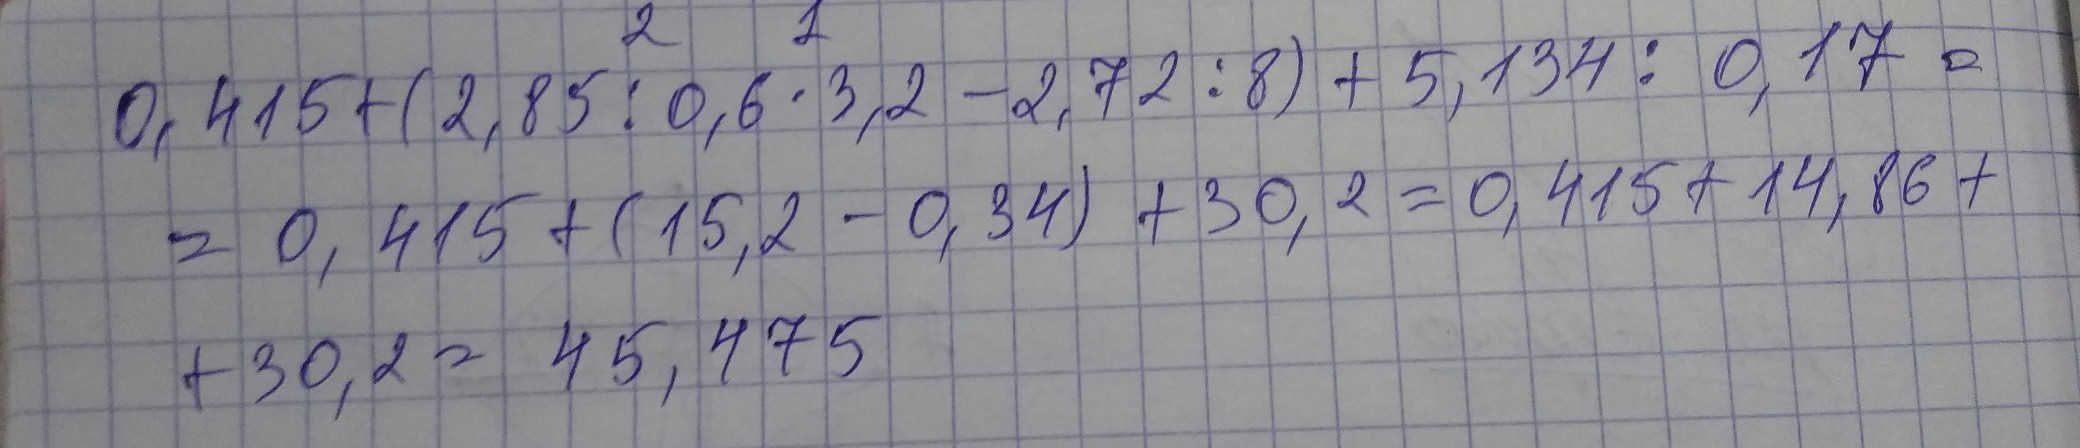 2 1
0,415+(2,85:0,6·3,2-2,72:8)+5,134:0,17=
=0,415+(15,2-0,34)+30,2=0,415+14,86+
+30,2=45,475